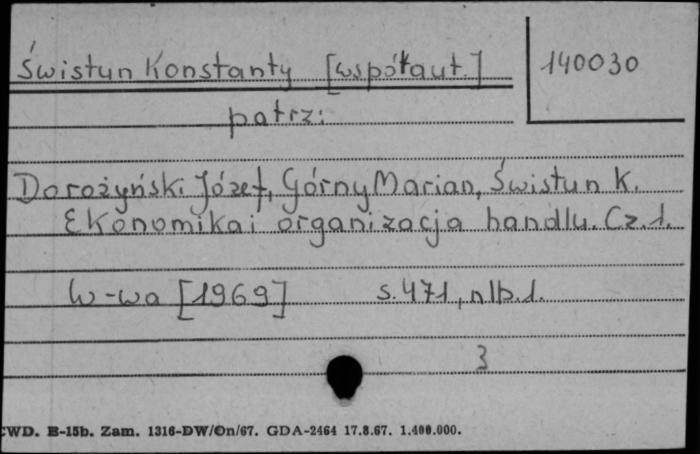 Świstun Konstanty [współaut.]
140030
patrz:
Dorożyński Józef, Górny Marian, Świstun K.
Ekonomika i organizacja handlu. Cz.1.
W-wa [1969] s.471, nlb.1.
3
CWD. B-15b. Zam. 1316-DW/On/67. GDA-2464 17.8.67. 1.400.000.